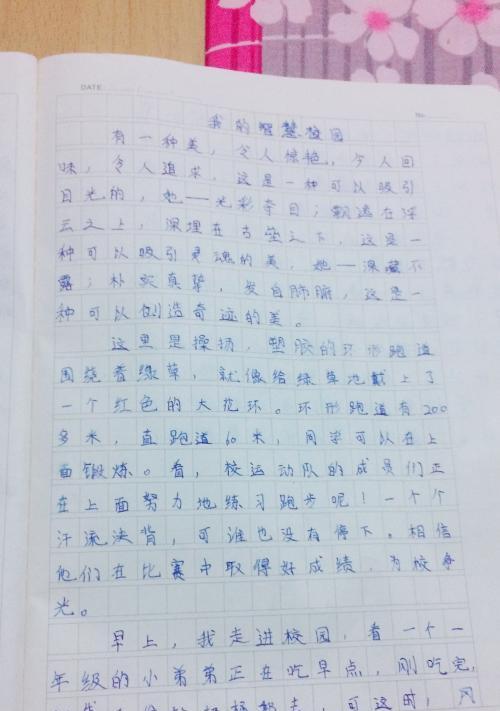 DATE
No.
我的智慧校园
有一种美，令人惊艳，令人回
味，令人追求，这是一种可以吸引
目光的，她——光彩夺目；飘逸在浮
云之上，深埋在古垒之下，这是一
种可以吸引灵魂的美，她——深藏不
露；朴实真挚，发自肺腑，这是一
种可以创造奇迹的美。
这里是操场，塑胶的环形跑道
围绕着绿草，就像给绿草地戴上了
一个红色的大花环。环形跑道有200
多米，直跑道60米，同学可以在上
面锻炼。看，校运动队的成员们正
在上面努力地练习跑步呢！一个个
汗流浃背，可谁也没有停下。相信
他们在比赛中取得好成绩，为校争
光。
早上，我走进校园，看一个一
年级的小弟弟正在吃早点，刚吃完，
可这时，风